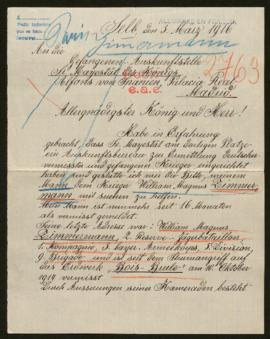 ALLEMAND EN FUERZA
Zimmermann
Selb, den 3. März 1916
2763
An die
Gefangenen Auskunftstelle
Sr. Majestät des Königs
Alfons von Spanien, Palacio Real
Madrid
Allergnädigster König und Herr!
Habe in Erfahrung
gebracht, dass Sr. Majestät am dortigen Platze
ein Auskunftsbureau zur Ermittlung deutscher
vermisster und gefangener Krieger eingerichtet
haben und gestatte ich mir die Bitte, meinen
Mann, dem Krieger William Magnus Zimmer-
mann mit suchen zu helfen.
Mein Mann ist nunmehr seit 16 Monaten
als vermisst gemeldet.
Seine letzte Adresse war: William Magnus
Zimmermann, 2. Reserve-Jägerbataillon
1. Kompagnie, 3. bayer. Armeekorps, 5. Division,
9. Brigade und ist seit dem Sturmangriff auf
das Erdwerk "Bois-Brulé" am 10. Oktober
1914 vermisst.
Durch Aussierungen seiner Kameraden besteht